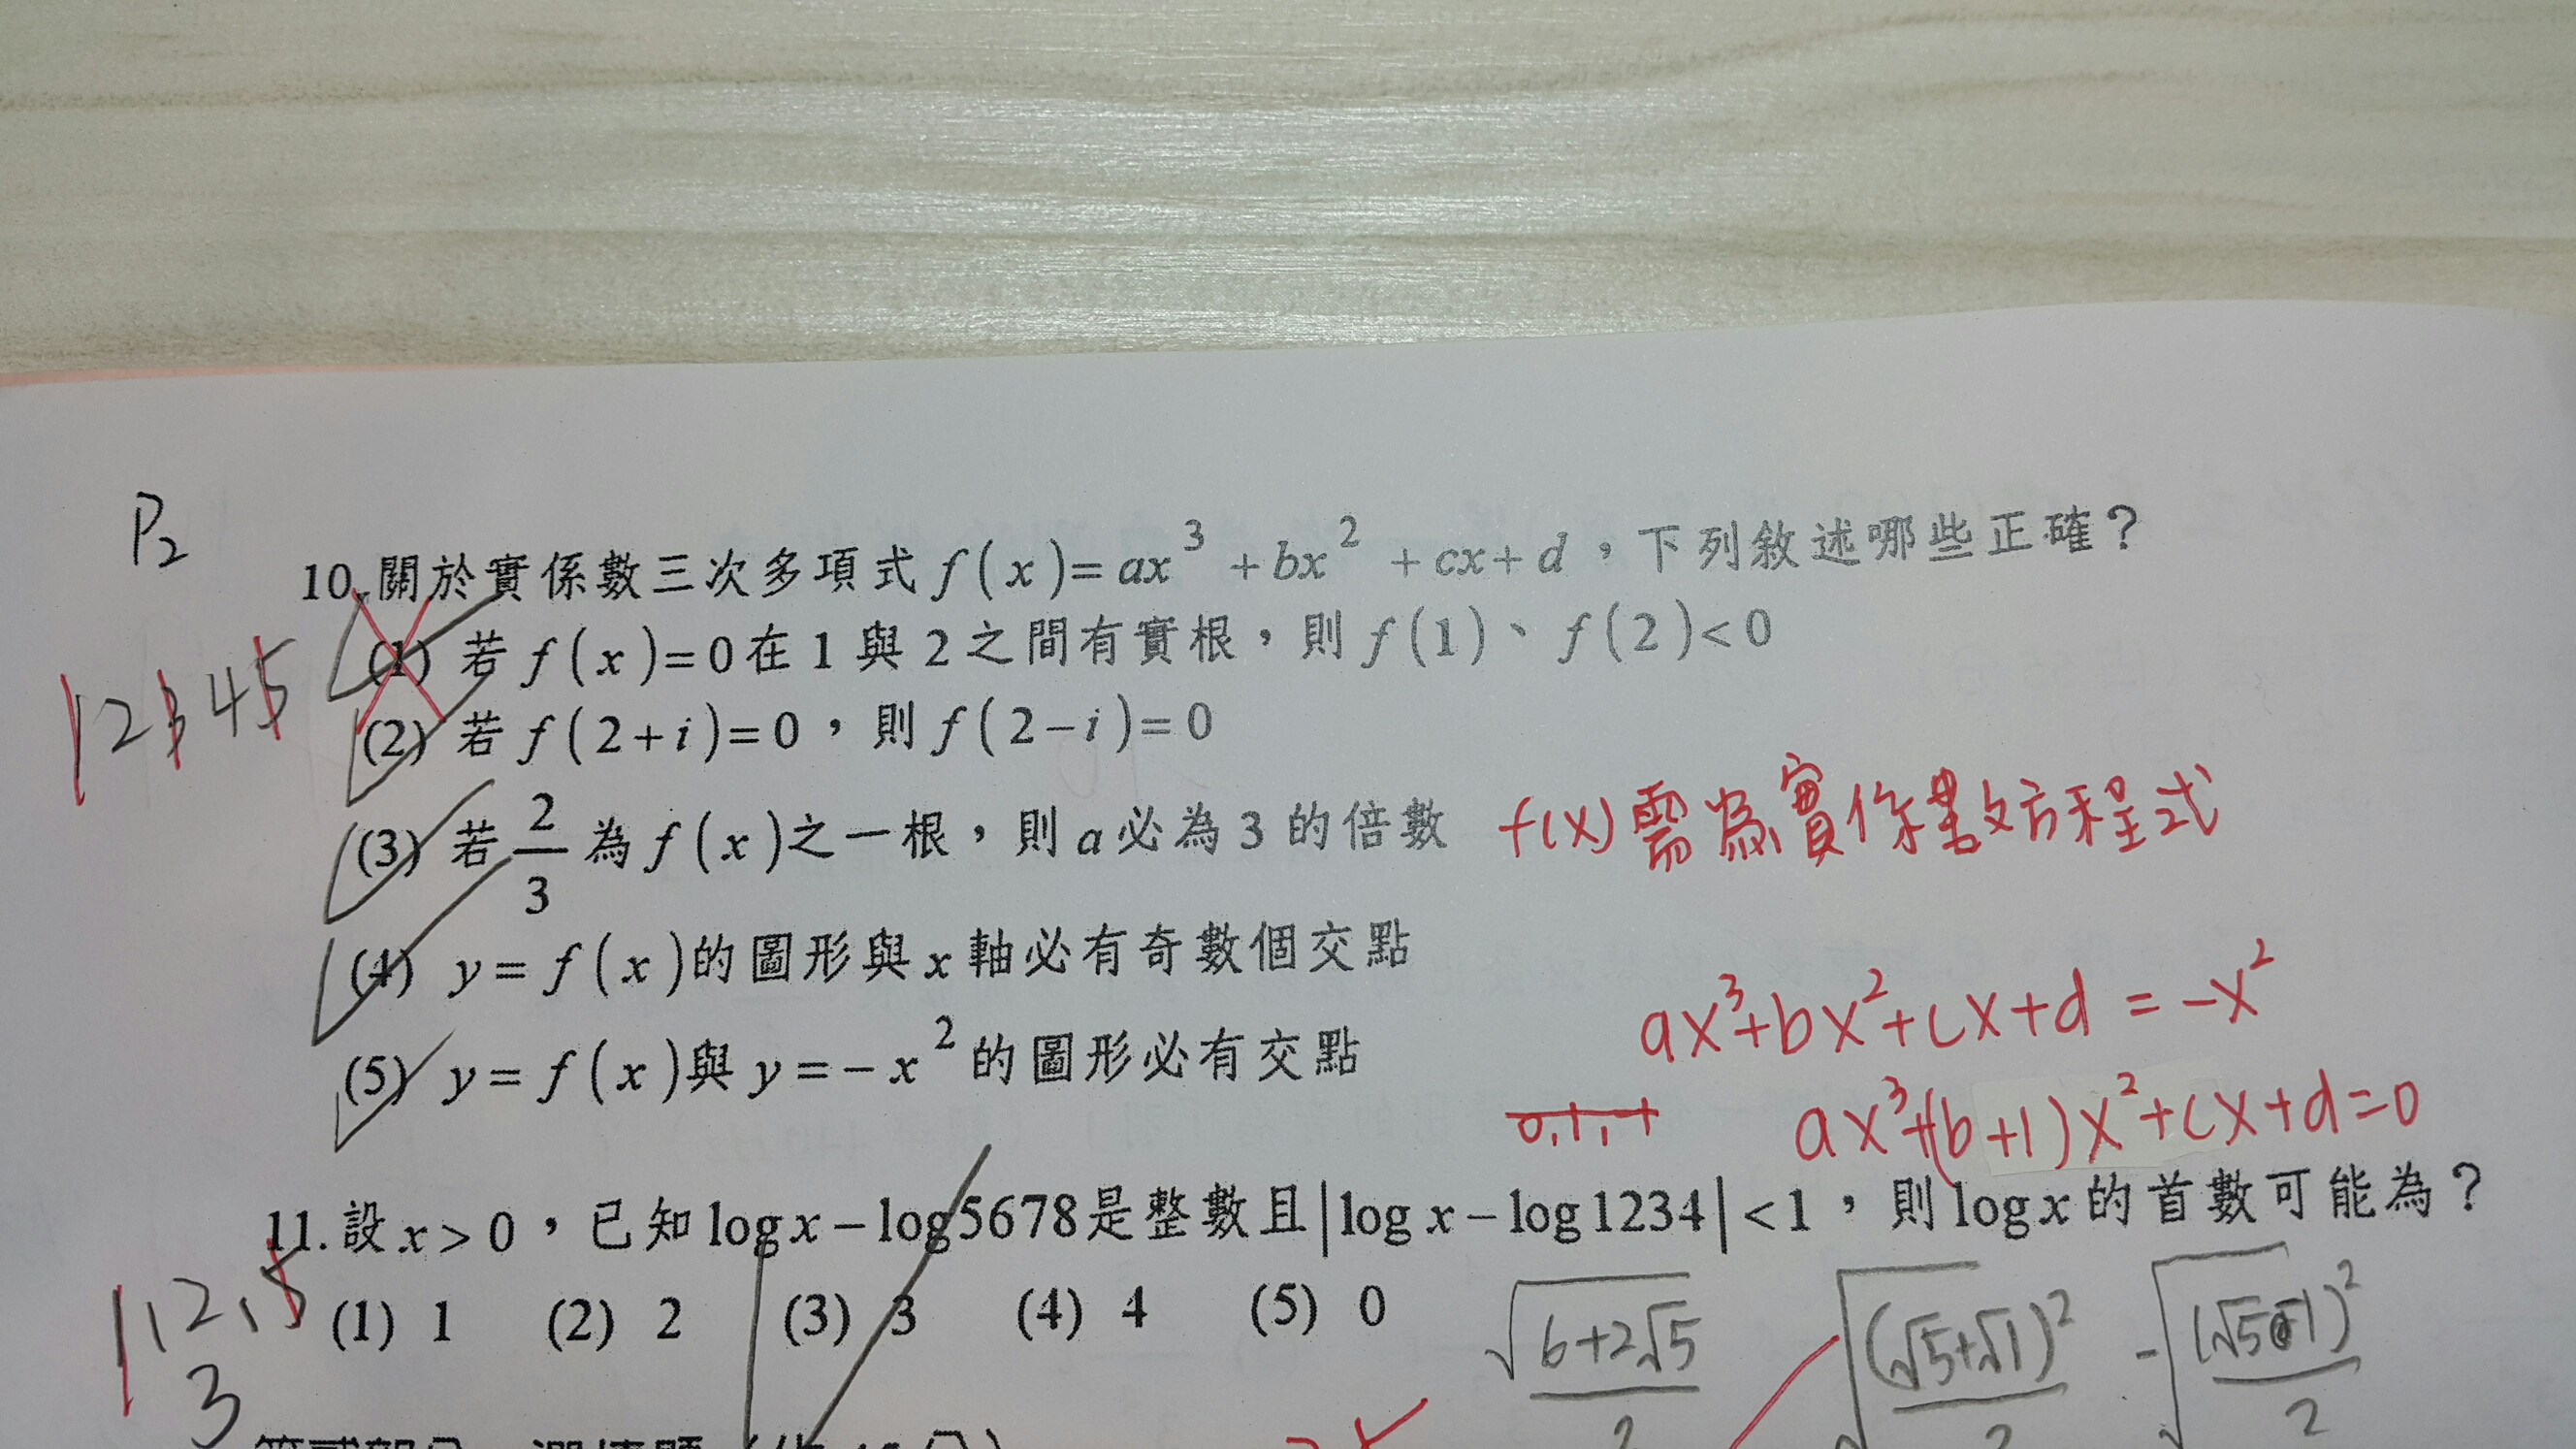 P2
10.關於實係數三次多項式 f(x)=ax³+bx²+cx+d，下列敘述哪些正確？
(1) 若 f(x)=0在1與2之間有實根，則 f(1)、f(2)<0
12345
(2) 若 f(2+i)=0，則 f(2-i)=0
(3) 若 2/3 為 f(x)之一根，則 a 必為 3 的倍數
f(x)需為實係數方程式
(4) y=f(x)的圖形與 x 軸必有奇數個交點
ax³+bx²+cx+d=-x²
(5) y=f(x)與 y=-x²的圖形必有交點
ax³+(b+1)x²+cx+d=0
11.設 x>0，已知 log x-log5678是整數且|log x-log1234|<1，則 log x 的首數可能為？
1,2,5
3
(1) 1 (2) 2 (3) 3 (4) 4 (5) 0
√(6+2√5)/2 √(√5+√1)²/2